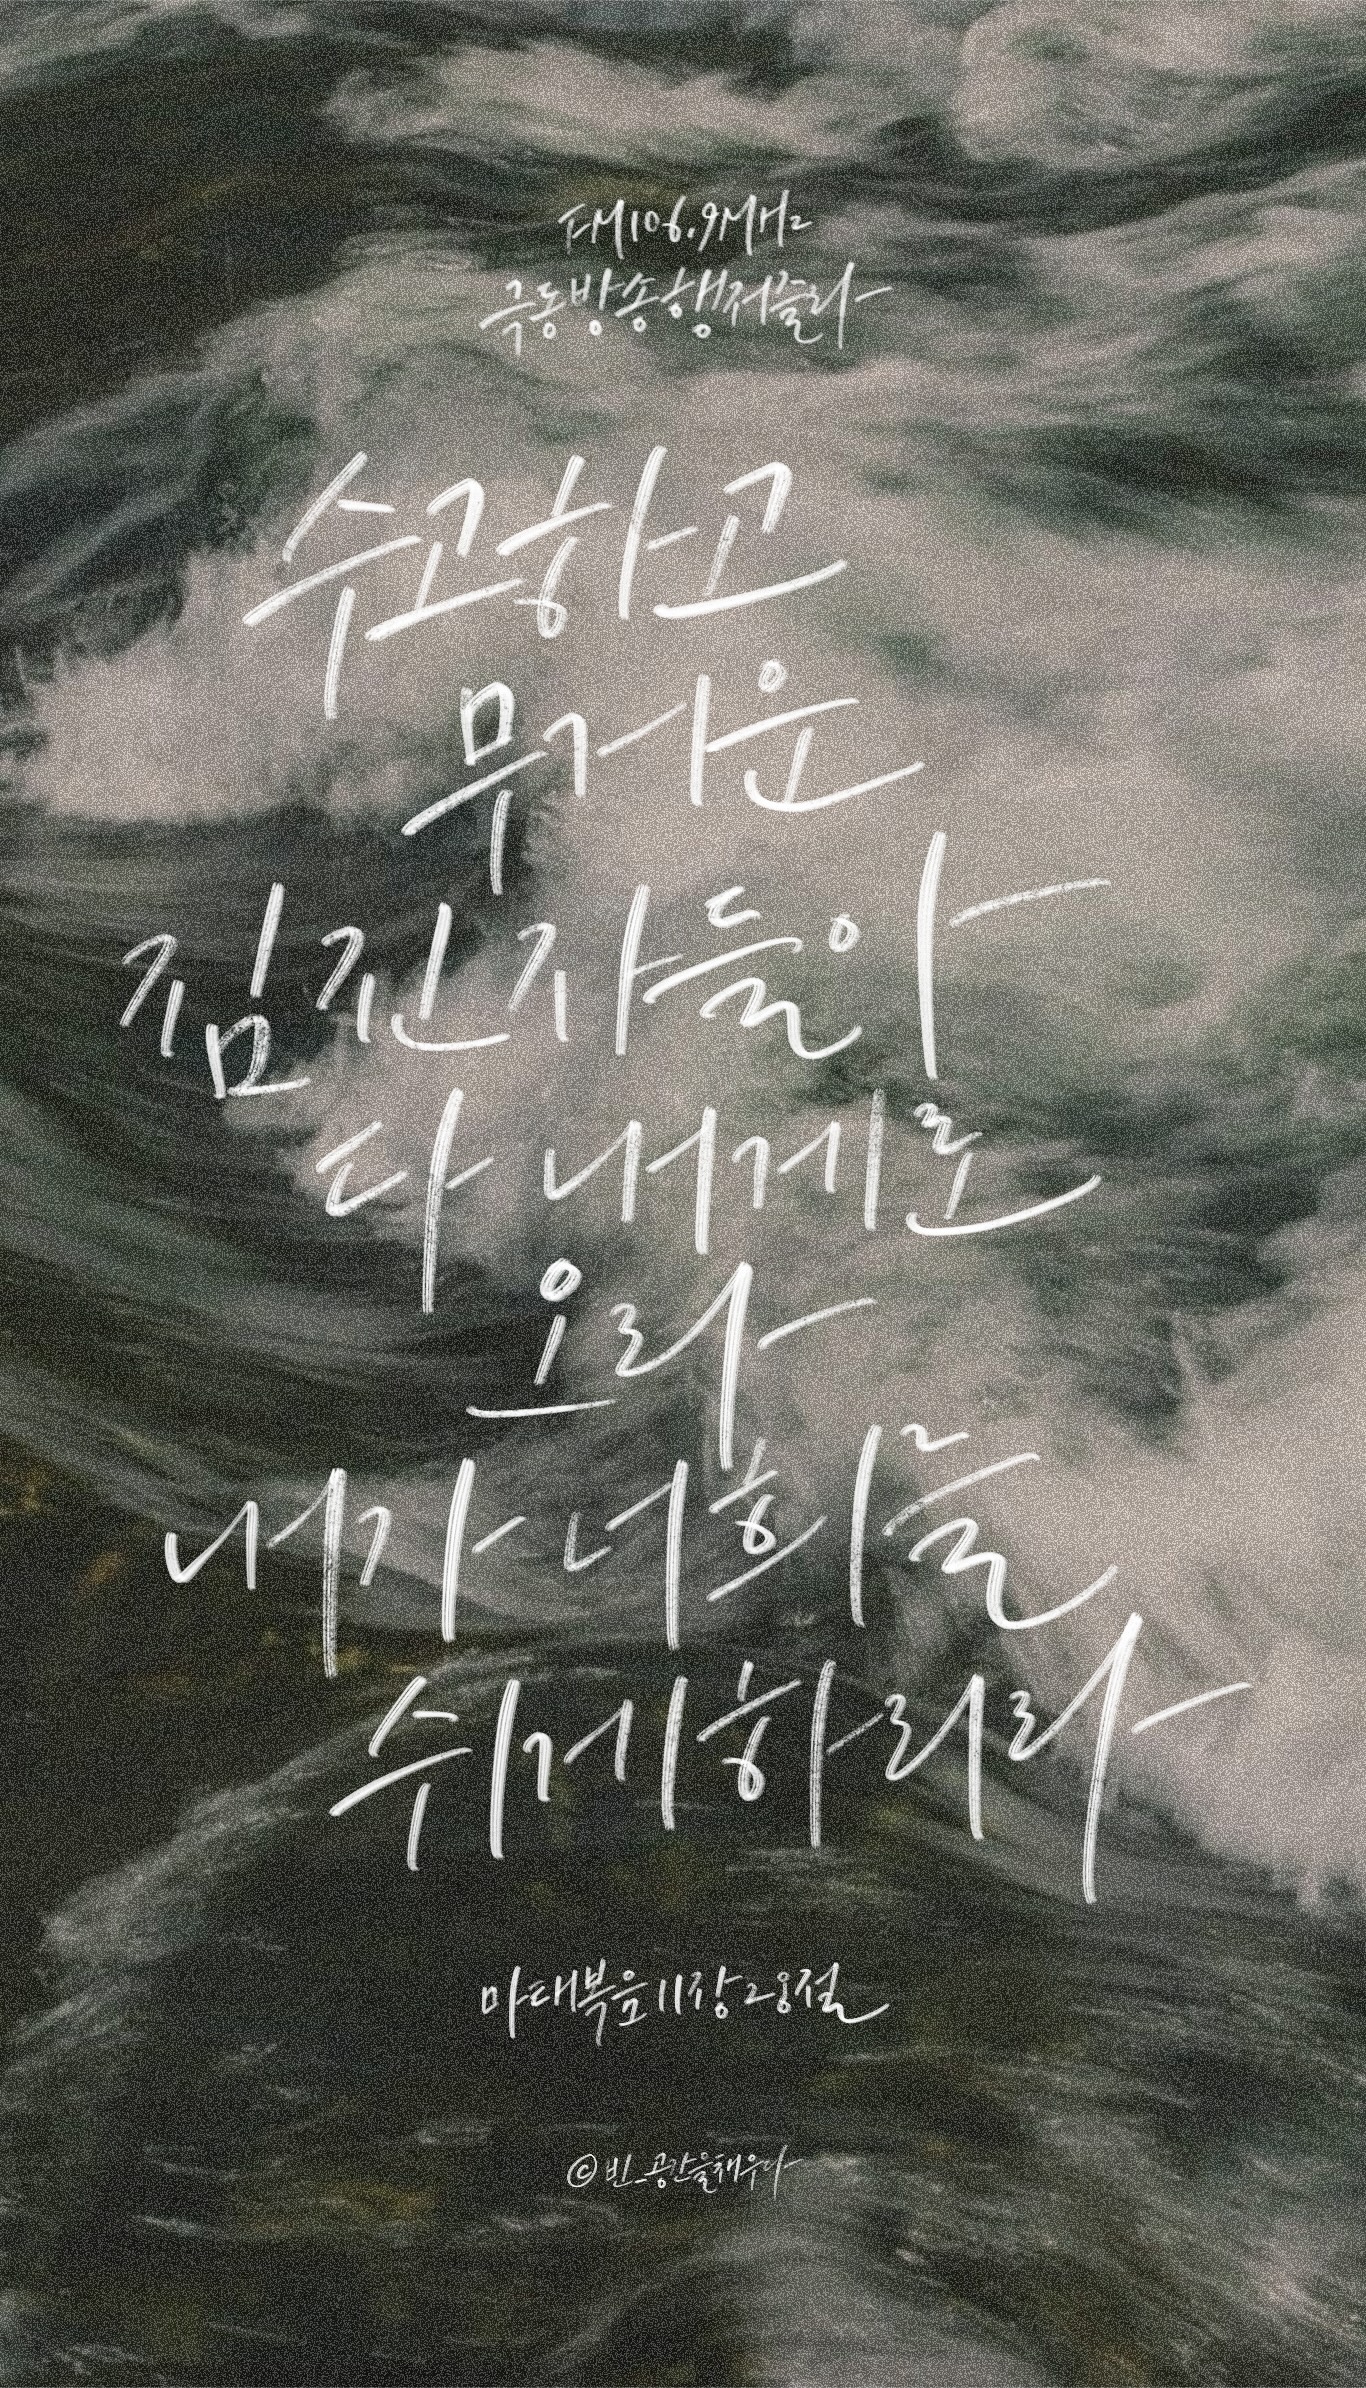 FM106.9MHz
극동방송행저즐라
수고하고
무거운
짐진자들아
다 내게로
오라
내가 너희를
쉬게하리라
마태복음11장28절
© 빈_공간을채우다